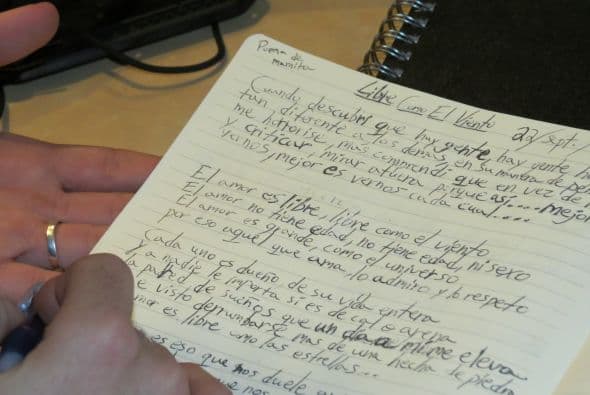 Poema de
mamita
Libre Como El Viento 22/sept./
Cuando descubri que hay gente, hay gente
tan diferente a los demás, en su manera de pen
me horrorise, mas comprendi que en vez de
y criticar, mirar afuera porque asi.... mejor
ya no, mejor es vernos cada cual....
El amor es libre, libre como el viento
El amor no tiene edad, no tiene edad, ni sexo
El amor es grande, como el universo
por eso aquel que ama, lo admiro y lo respeto
Cada uno es dueño de su vida entera
y a nadie le importa si es de cal o arena
la pared de sueños que un dia a mi me eleva
e visto derrumbarse mas de una hecha de piedra
mor es libre como las estrellas...
es eso que nos duele
que nos